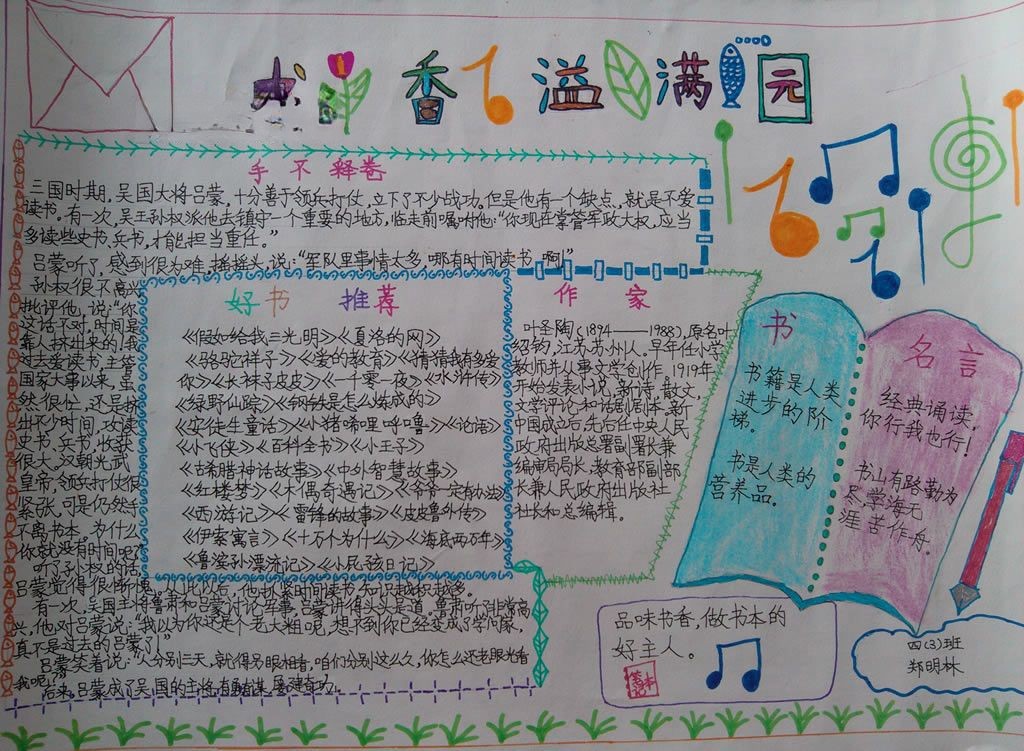 书香溢满园
手不释卷
三国时期,吴国大将吕蒙,十分善于领兵打仗,立下了不少战功。但是他有一个缺点,就是不爱
读书。有一次,吴王孙权派他去镇守一个重要的地方,临走前嘱咐他:“你现在掌管军政大权,应当
多读些史书、兵书,才能担当重任。”
吕蒙听了,感到很为难,摇摇头,说:“军队里事情太多,哪有时间读书 啊!”
孙权很不高兴
批评他,说:“你
这话不对,时间是
靠人挤出来的!我
过去爱读书,主管
国家大事以来,虽
然很忙,还是挤
出不少时间,攻读
史书、兵书,收获
很大。汉朝光武
皇帝,领兵打仗很
紧张,可是仍然手
不离书本。为什么
你就没有时间呢?
听了孙权的话
吕蒙觉得很惭愧。从此以后,他抓紧时间读书,知识越积越多。
有一次,吴国主将鲁肃和吕蒙讨论军事,吕蒙讲得头头是道。鲁肃听了非常高
兴,他对吕蒙说:“我以为你还是个老大粗呢,想不到你已经变成了学问家,
真不是过去的吕蒙了!”
吕蒙笑着说:“人分别三天,就得另眼相看,咱们分别这么久,你怎么还老眼光看
我呢!”
后来,吕蒙成了吴国的主将,有勇有谋,屡建奇功。
好书 推荐
《假如给我三天光明》《夏洛的网》
《骆驼祥子》《爱的教育》《猜猜我有多爱
你》《长袜子皮皮》《一千零一夜》《水浒传》
《绿野仙踪》《钢铁是怎么炼成的》
《安徒生童话》《小猪唏哩呼噜》《论语》
《小飞侠》《百科全书》《小王子》
《古希腊神话故事》《中外智慧故事》
《红楼梦》《木偶奇遇记》《爷爷一定有办法》
《西游记》《雷锋的故事》《皮皮鲁外传》
《伊索寓言》《十万个为什么》《海底两万年》
《鲁滨孙漂流记》《小民孩日记》
作 家
叶圣陶(1894——1988),原名叶
绍钧,江苏苏州人。早年任小学
教师并从事文学创作,1919年
开始发表小说、新诗、散文、
文学评论和话剧剧本。新
中国成立后,先后任中央人民
政府出版总署副署长兼
编审局局长,教育部副部
长兼人民政府出版社
社长和总编辑。
书
书籍是人类
进步的阶
梯。
书是人类的
营养品。
名言
经典诵读,
你行我也行!
书山有路勤为
径,学海无
涯苦作舟。
品味书香,做书本的
好主人。
四(3)班
郑明林